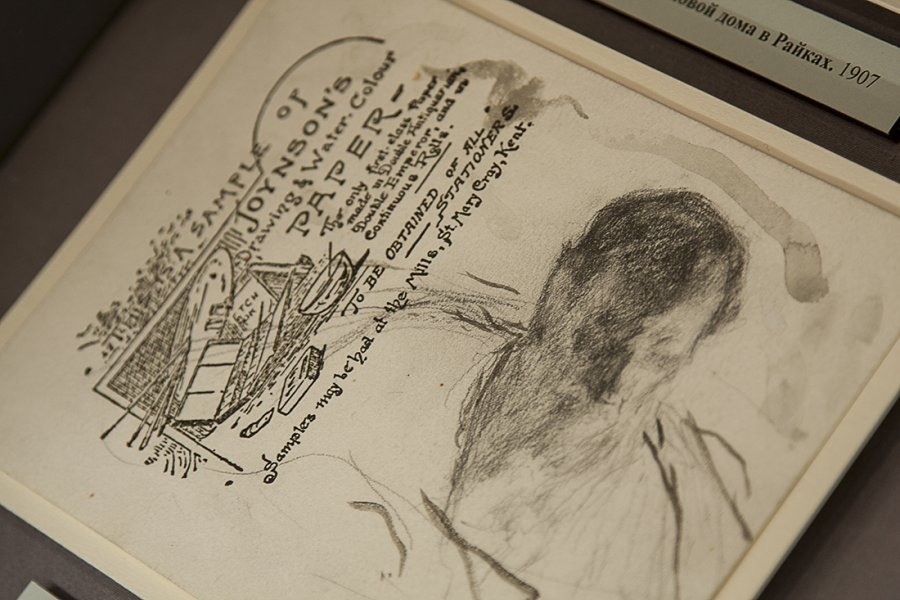 овой дома в Райках. 1907
THIS IS A SAMPLE OF
JOYNSON'S
Drawing & Water. Colour
PAPER-
The only first-class Paper
made in Double Antiquarian
Double Emperor, and up
Continuous Rolls.
TO BE OBTAINED OF ALL
STATIONERS.
Samples may be had at the Mills, St Mary Cray, Kent.